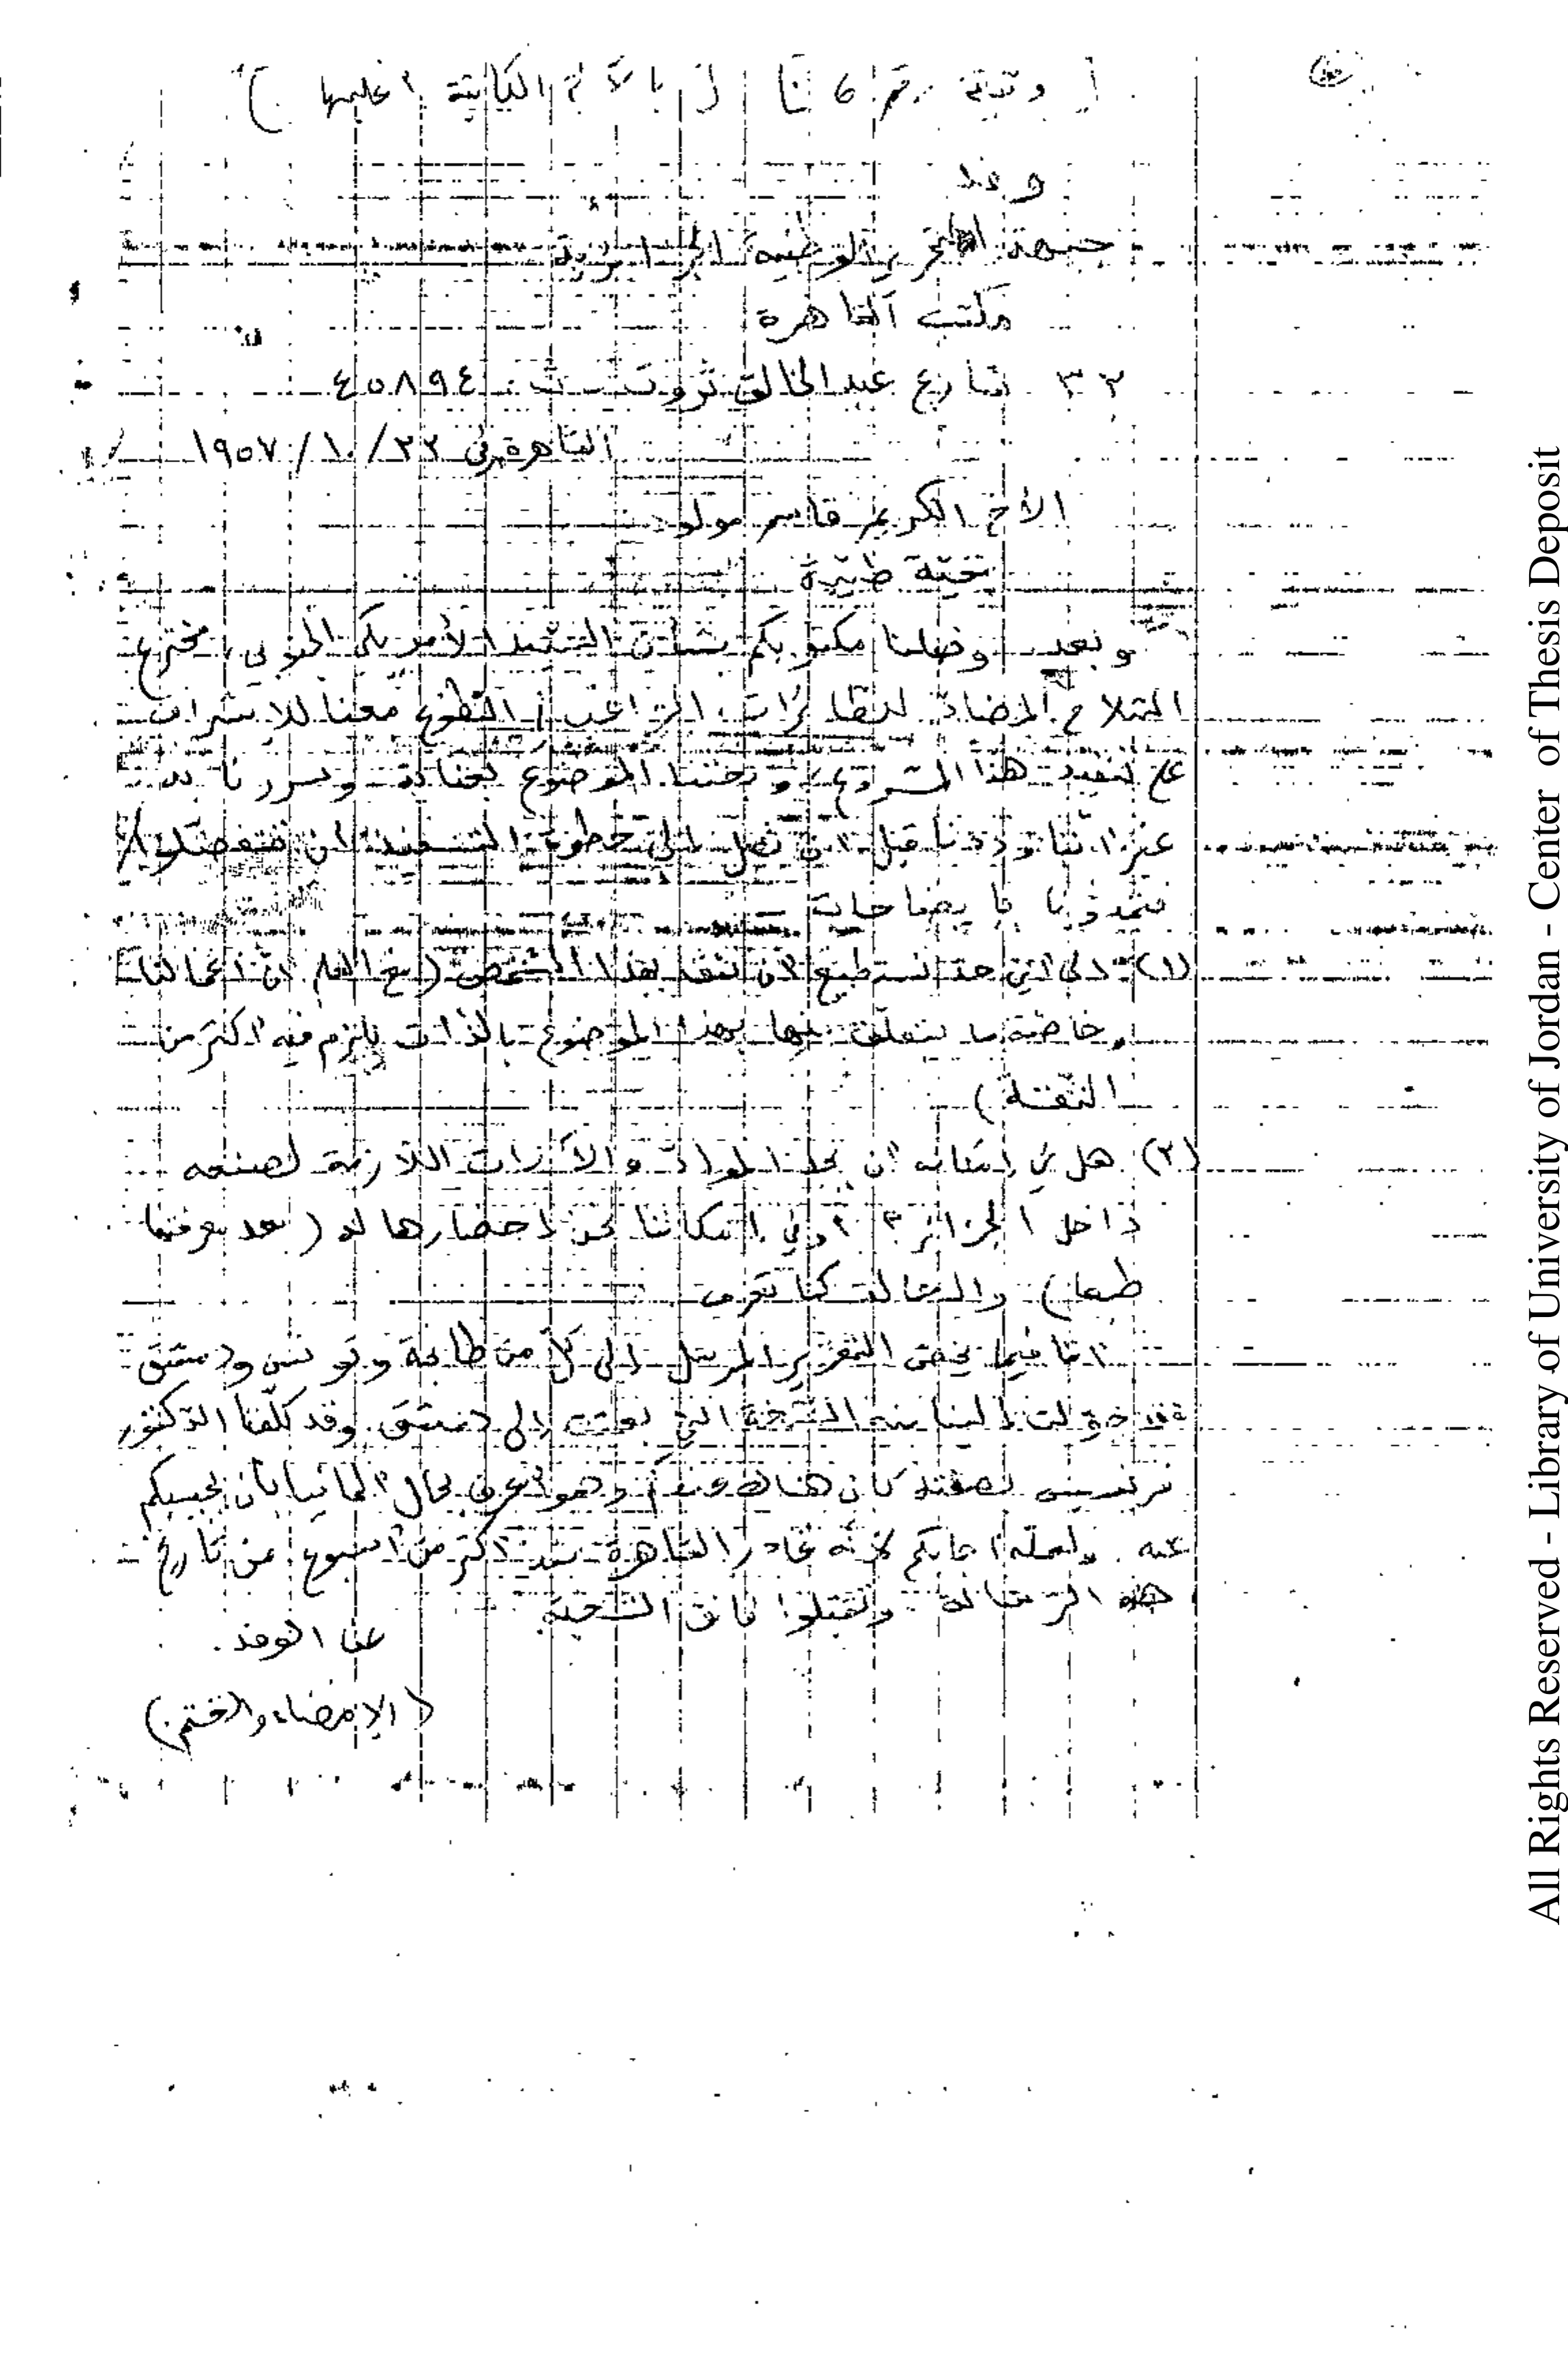 ( وثيقة رقم ٦ بالآلة الكاتبة )
وفد
جبهة التحرير الوطنية الجزائرية
مكتب القاهرة
٣٢ شارع عبد الخالق ثروت ت. ٤٥٨٩٤
القاهرة في ٢٢/ ١٠/ ١٩٥٧
الأخ الكريم قاسم مولود
تحيّة طيّبة
وبعد وصلنا مكتوبكم بشأن السيّد الأمريكي الجنوبي، مخترع
السّلاح المضادّ للطائرات، الرّاغب التطوّع معنا للإشراف
على تنفيذ هذا المشروع، وبحثنا الموضوع بعناية وسررنا به
غير أنّنا وددنا قبل أن نصل إلى خطوة التنفيذ أن
تمدّونا بإيضاحات
(١) إلى أيّ حدّ نستطيع أن نثق بهذا الشخص (مع العلم أنّ أعمالنا
وخاصّة ما يتعلّق منها بهذا الموضوع بالذّات يلزم فيه أكثر من
الثّقة)
(٢) هل في إمكانه أن يجد الموادّ والآلات اللاّزمة لصنعه
داخل الجزائر ؟ أو في إمكاننا نحن إحضارها له (بعد معرفتها
طبعا) والمسالك كما تعرف
أمّا فيما يخصّ التقرير المرسل إلى كلّ من طانجة وتونس ودمشق
فقد حوّلت إلينا منه النّسخة التي بعثت إلى دمشق. وقد كلّفنا الدّكتور
بصفته كان هناك وهو أعرف بحال ألمانيا بأن يجيبكم
عنه. ولعلّه أجابكم لأنّه غادر القاهرة منذ أكثر من أسبوع من تاريخ
هذه الرّسالة وتقبّلوا فائق التّحيّة
عن الوفد.
(الإمضاء والختم)
All Rights Reserved - Library of University of Jordan - Center of Thesis Deposit